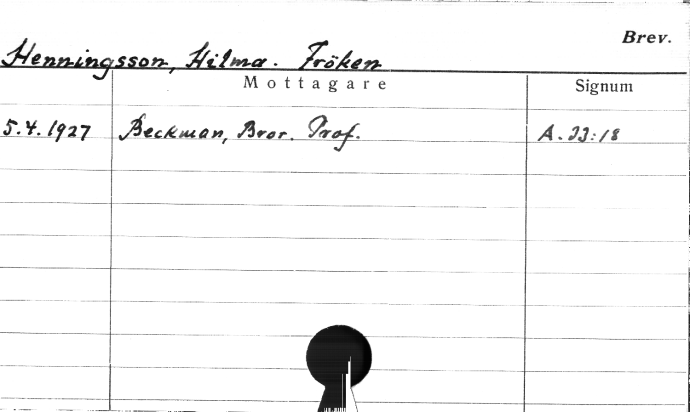 Brev.
Henningsson, Hilma. Fröken
Mottagare Signum
5.4.1927 Beckman, Bror. Prof. A.33:18